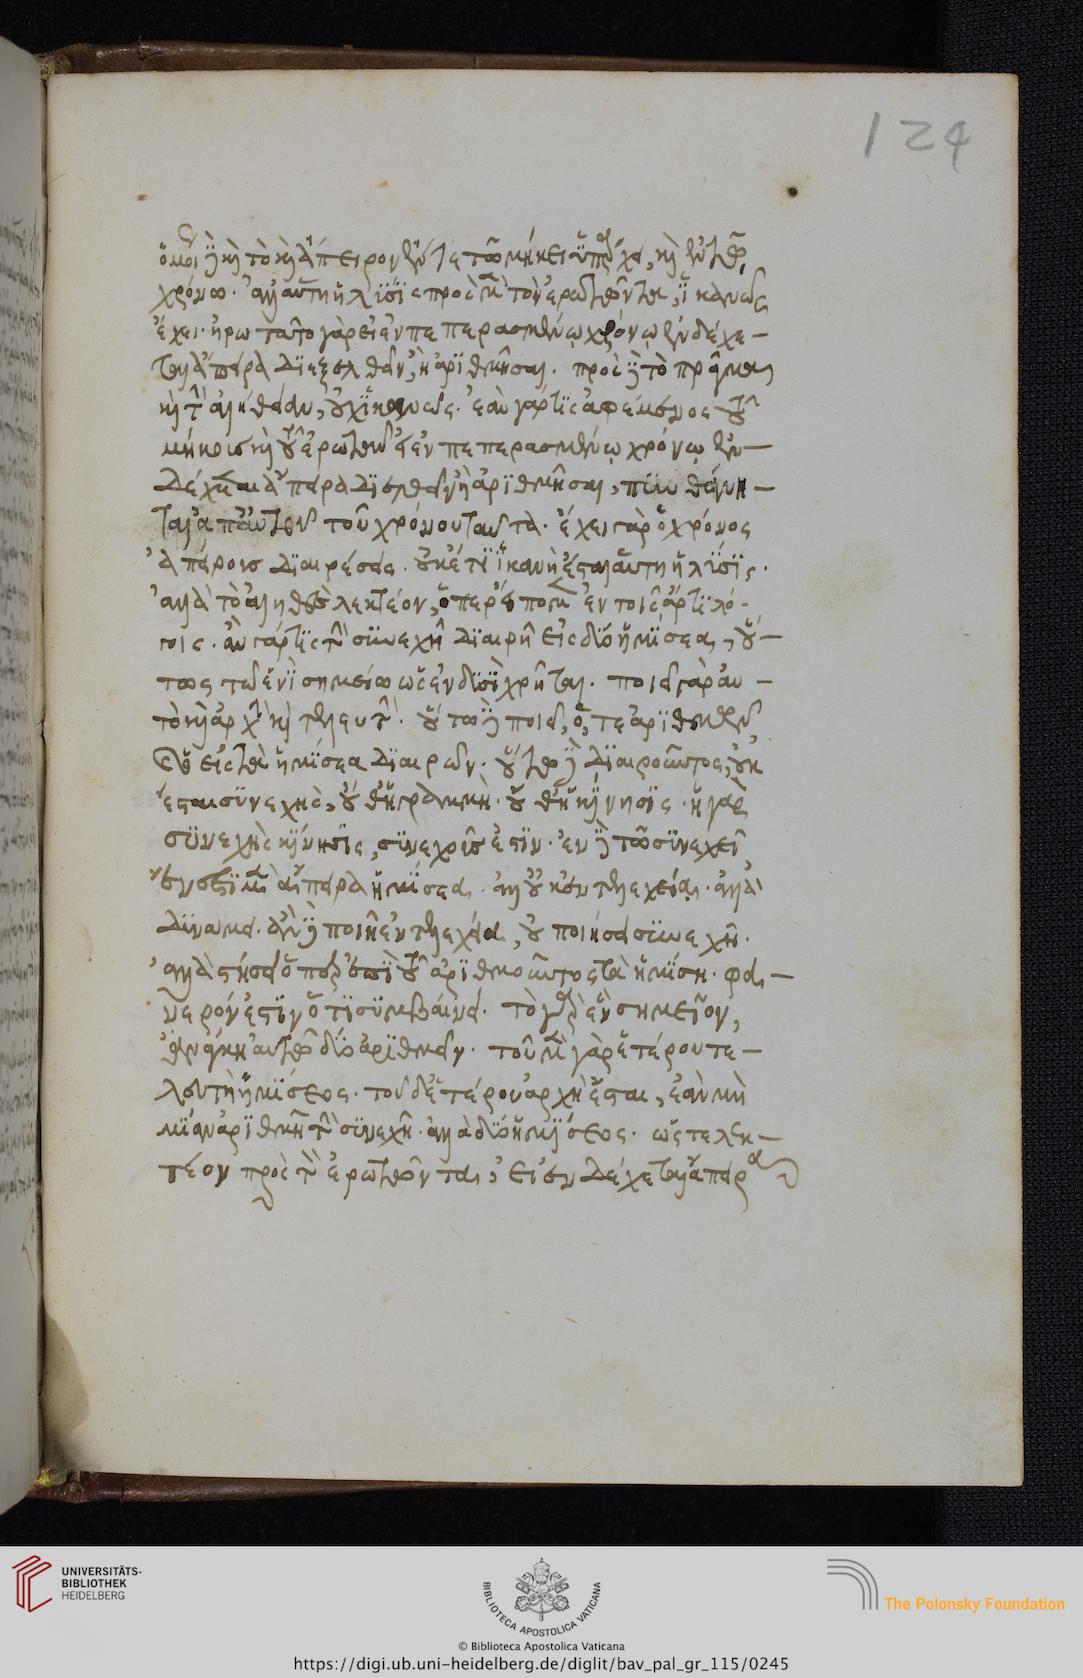 124
ὁμοί δὲ καὶ τὸ καὶ ἄπειρον ἔν τε τῶ μήκει ὑπάρχει, καὶ ἐν τῶ
χρόνω. ἀλλ' αὕτη ἡ λύσις πρὸς μὲν τὸν ἐρωτῶντα, ἱκανῶς
ἔχει. ἠρωτᾶτο γὰρ εἰ ἐν πεπερασμένῳ χρόνῳ ἐνδέχε-
ται ἄπειρα διεξελθεῖν, ἢ ἀριθμῆσαι. πρὸς δὲ τὸ πρᾶγμα
καὶ τὴν ἀλήθειαν, οὐχ ἱκανῶς. ἐὰν γάρ τις ἀφέμενος τοῦ
μήκους καὶ τοῦ ἐρωτᾶν εἰ ἐν πεπερασμένῳ χρόνῳ ἐν-
δέχεται ἄπειρα διελθεῖν ἢ ἀριθμῆσαι, πυνθάνη-
ται ἐπ' αὐτοῦ τοῦ χρόνου ταῦτα. ἔχει γὰρ ὁ χρόνος
ἀπείρους διαιρέσεις. οὐκέτι ἱκανὴ ἔσται αὕτη ἡ λύσις.
ἀλλὰ τὸ ἀληθὲς λεκτέον, ὅπερ εἴπομεν ἐν τοῖς ἄρτι λό-
γοις. ἂν γάρ τις τὴν συνεχῆ διαιρῇ εἰς δύο ἡμίσεα, οὕ-
τως τῶ ἑνὶ σημείω ὡς ἐν δυσὶ χρῆται. ποιεῖ γὰρ αὐ-
τὸ καὶ ἀρχὴν καὶ τελευτήν. οὕτω δὲ ποιεῖ, ὅ, τε ἀριθμῶν
καὶ ὁ εἰς τὰ ἡμίσεα διαιρῶν. οὕτω δὲ διαιροῦντος, οὐκ
ἔσται συνεχὴς, οὔθ' ἡ γραμμὴ. οὔθ' ἡ κίνησις. ἡ γὰρ
συνεχὴς κίνησις, συνεχοῦς ἐστὶν. ἐν δὲ τῶ συνεχεῖ
ἔνεστι μὲν ἄπειρα ἡμίσεα. ἀλλ' οὐκ ἐντελεχείᾳ. ἀλλὰ
δυνάμει. ἂν δὲ ποιῇ ἐντελεχείᾳ, οὐ ποιήσει συνεχῆ.
ἀλλὰ στήσει ὅπερ ἐπὶ τοῦ ἀριθμοῦντος τὰ ἡμίση. φα-
νερόν ἐστιν ὅτι συμβαίνει. τὸ γὰρ ἓν σημεῖον,
ἀνάγκη αὐτῶ δύο ἀριθμεῖν. τοῦ μὲν γὰρ ἑτέρου τε-
λευτὴ ἡμίσεος. τοῦ δ' ἑτέρου ἀρχὴ ἔσται, ἐὰν μὴ
μίαν ἀριθμῇ τὴν συνεχῆ. ἀλλὰ δύο ἡμίσεος. ὥστε λεκ-
τέον πρὸς τὸν ἐρωτῶντα, εἰ ἐνδέχεται ἄπειρα
UNIVERSITÄTS-
BIBLIOTHEK
HEIDELBERG
BIBLIOTECA APOSTOLICA VATICANA
The Polonsky Foundation
© Biblioteca Apostolica Vaticana
https://digi.ub.uni-heidelberg.de/diglit/bav_pal_gr_115/0245